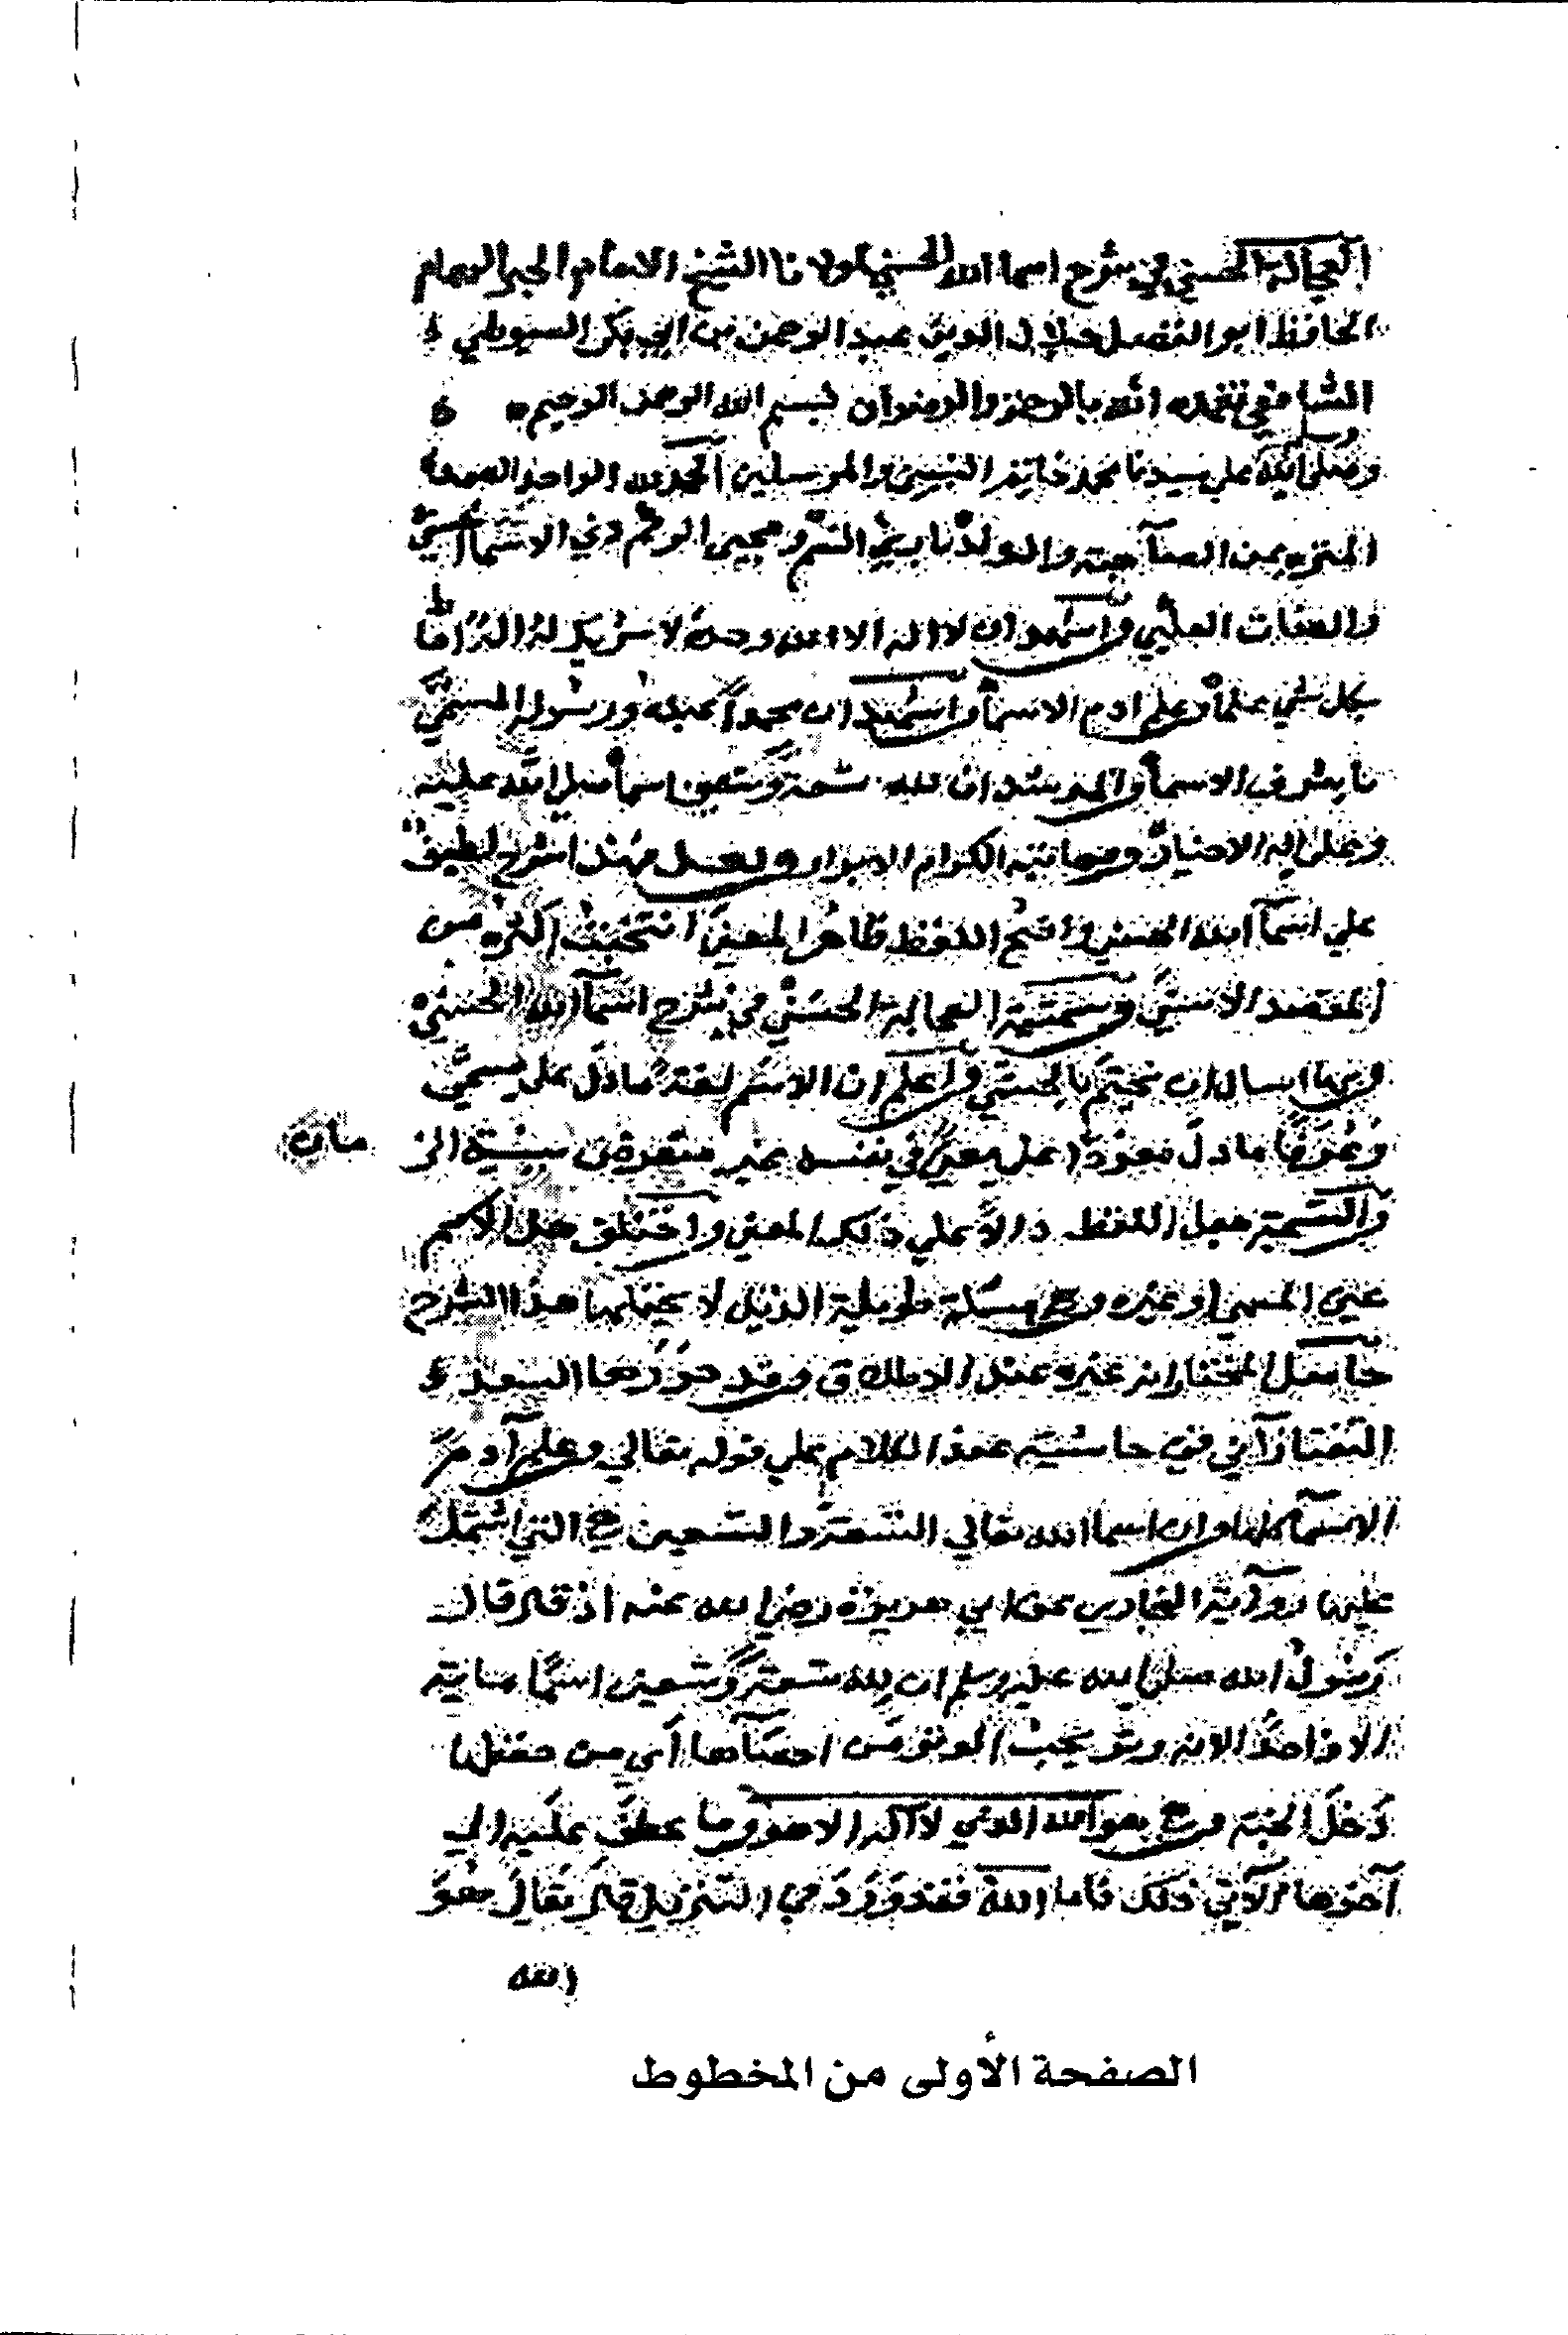 العجالة الحسني في شرح اسما الله الحسني لمولانا الشيخ الامام الحبر الهمام
الحافظ ابو الفضل جلال الدين عبد الرحمن بن ابي بكر السيوطي
الشافعي تغمده الله بالرحمة والرضوان بسم الله الرحمن الرحيم
وصلى الله علي سيدنا محمد خاتم النبيين والمرسلين وسلم الحمد لله الواحد الصمد
المنزه عن الصاحبة والولد باري النسم ومحيي الرمم ذي الاسماء الحسني
والصفات العلي واشهد ان لا اله الا الله وحده لا شريك له اله احاط
بكل شي علما وعلم ادم الاسماء واشهد ان محمدا عبده ورسوله المسمي
باشرف الاسماء والمرشد ان لله تسعة وتسعين اسما صلى الله عليه
وعلى اله الاخيار وصحابته الكرام الابرار وبعد فهذا شرح لطيف
علي اسماء الله الحسني واضح اللفظ ظاهر المعنى انتخبت اكثره من
المقصد الاسني وسميته العجالة الحسني في شرح اسماء الله الحسني
وبها اسال ان يختم بالحسني واعلم ان الاسم لغة ما دل على مسمي
وعرفا ما دل مفردا على معني في نفسه غير متعرض ببنيته الزمان
والتسمية جعل اللفظ دالا علي ذلك المعنى واختلف هل الاسم
عين المسمي او غيره وهي مسئلة طويلة الذيل لا يحتملها هذا الشرح
حاصل المختار انه غيره عند الاطلاق وقد حررها السعد
التفتازاني في حاشيته عند الكلام علي قوله تعالي وعلم آدم
الاسماء كلها وان اسما الله تعالي التسعة والتسعين هي التي اشتملت
عليها رواية البخاري عن ابي هريرة رضي الله عنه اذ قال قال
رسول الله صلى الله عليه وسلم ان لله تسعة وتسعين اسما ماية
الا واحدا لانه وتر يحب الوتر من احصاها أي من حفظها
دخل الجنة وهي هو الله الذي لا اله الا هو وما عطف عليه الي
آخرها الآتي ذلك فاما الله فقد ورد في التنزيل قال تعالى هو
الله
الصفحة الأولى من المخطوط